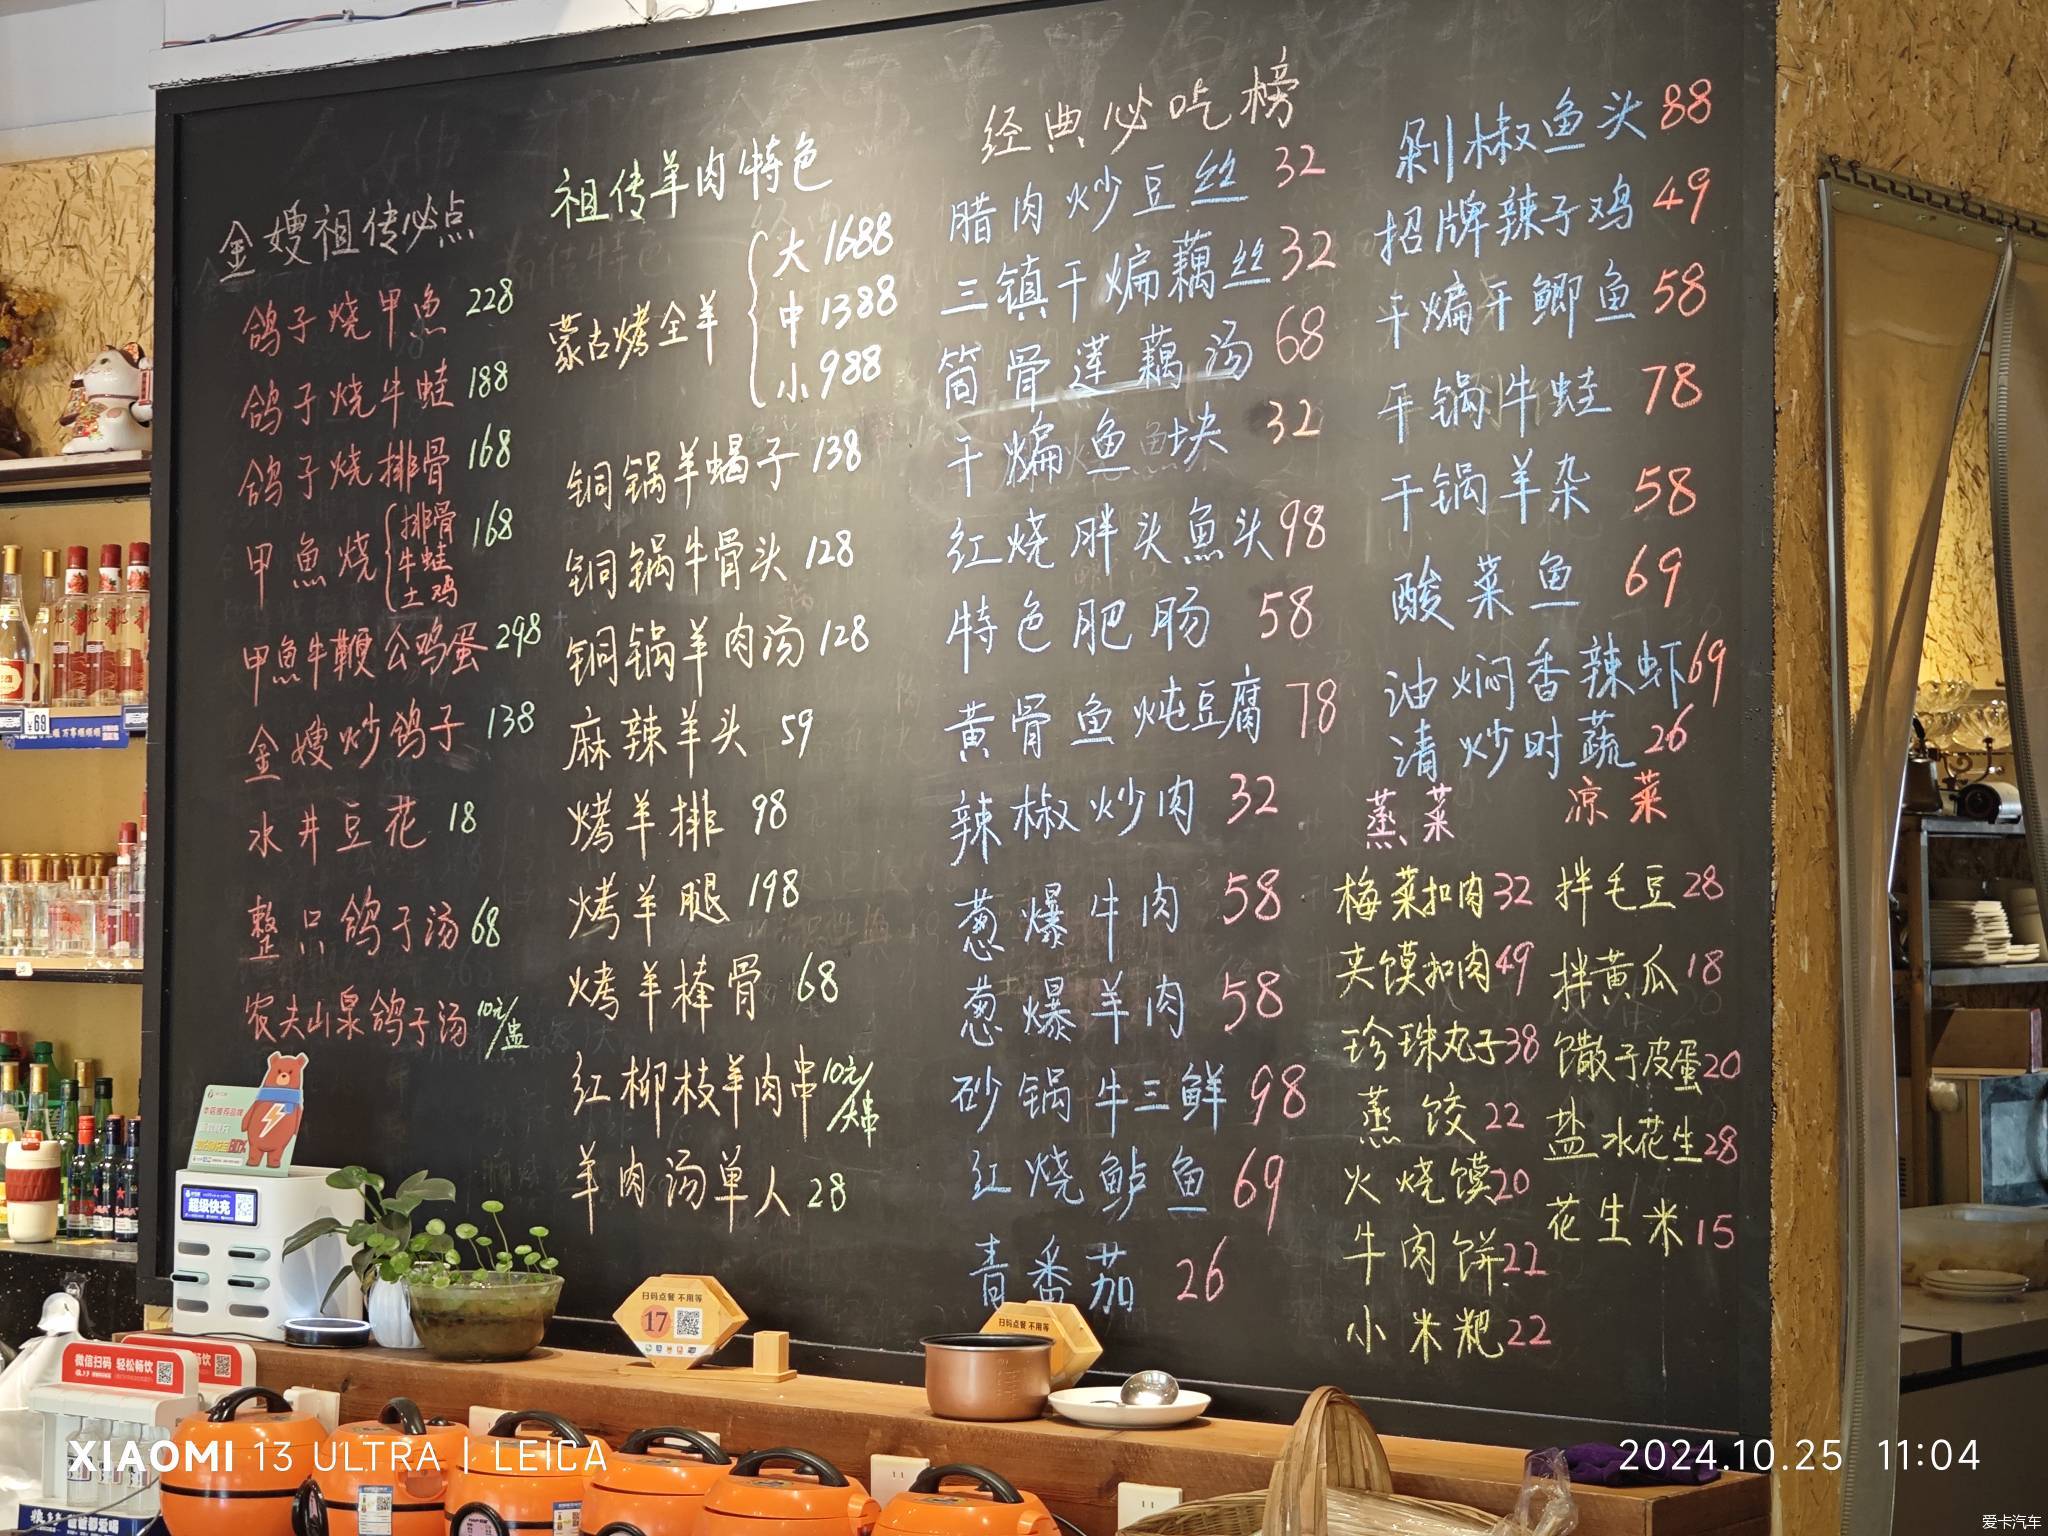 金嫂祖传必点
鸽子烧甲魚 228
鸽子烧牛蛙 188
鸽子烧排骨 168
甲魚烧 排骨 牛蛙 土鸡 168
甲魚牛鞭公鸡蛋 298
金嫂炒鸽子 138
水井豆花 18
整只鸽子汤 68
农夫山泉鸽子汤 10元/盅
祖传羊肉特色
蒙古烤全羊
大 1688
中 1388
小 988
铜锅羊蝎子 138
铜锅牛骨头 128
铜锅羊肉汤 128
麻辣羊头 59
烤羊排 98
烤羊腿 198
烤羊棒骨 68
红柳枝羊肉串 10元/大串
羊肉汤单人 28
经典必吃榜
腊肉炒豆丝 32
三镇干煸藕丝 32
筒骨莲藕汤 68
干煸鱼块 32
红烧胖头魚头 98
特色肥肠 58
黄骨鱼炖豆腐 78
辣椒炒肉 32
葱爆牛肉 58
葱爆羊肉 58
砂锅牛三鲜 98
红烧鲈鱼 69
青番茄 26
剁椒鱼头 88
招牌辣子鸡 49
干煸干鲫鱼 58
干锅牛蛙 78
干锅羊杂 58
酸菜鱼 69
油焖香辣虾 69
清炒时蔬 26
蒸菜
梅菜扣肉 32
夹馍扣肉 49
珍珠丸子 38
蒸饺 22
火烧馍 20
牛肉饼 22
小米粑 22
凉菜
拌毛豆 28
拌黄瓜 18
馓子皮蛋 20
盐水花生 28
花生米 15
¥69
超级快充
扫码点餐 不用等
17
扫码点餐 不用等
微信扫码 轻松畅饮
XIAOMI 13 ULTRA | LEICA
2024.10.25 11:04
爱卡汽车